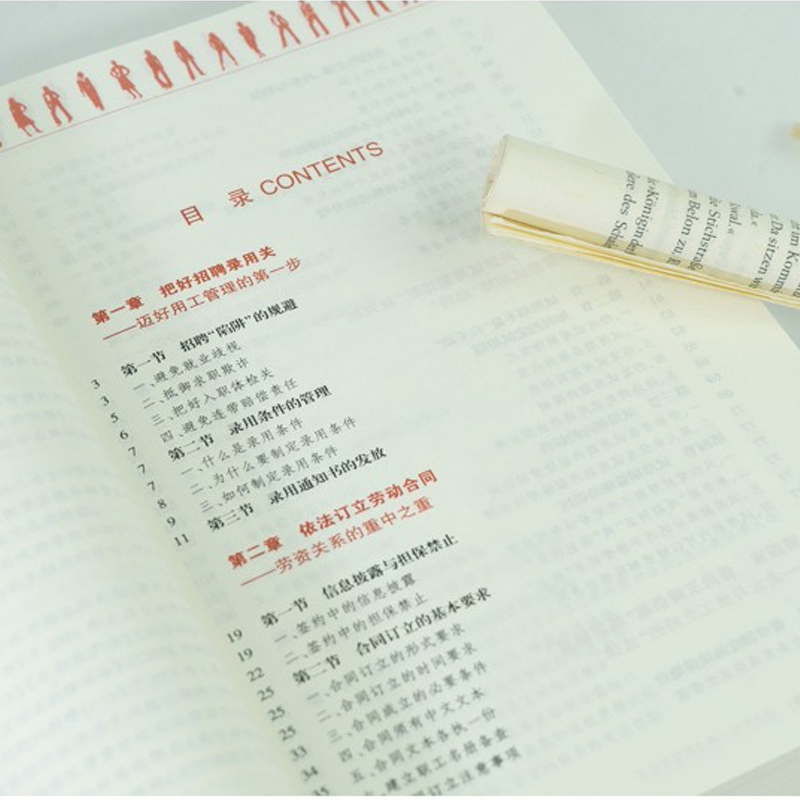 目 录 CONTENTS
第一章 把好招聘录用关
——迈好用工管理的第一步
3 第一节 招聘“陷阱”的规避
3 一、避免就业歧视
5 二、抵御求职欺诈
6 三、把好入职体检关
7 四、避免连带赔偿责任
7 第二节 录用条件的管理
7 一、什么是录用条件
8 二、为什么要制定录用条件
9 三、如何制定录用条件
11 第三节 录用通知书的发放
第二章 依法订立劳动合同
——劳资关系的重中之重
19 第一节 信息披露与担保禁止
19 一、签约中的信息披露
22 二、签约中的担保禁止
25 第二节 合同订立的基本要求
25 一、合同订立的形式要求
25 二、合同订立的时间要求
33 三、合同成立的必要条件
34 四、合同须有中文文本
35 五、合同文本各执一份
建立职工名册备查
同订立注意事项
ere des
Königin
Belon zu
e Stichstraße
Da sitzen
im Komm